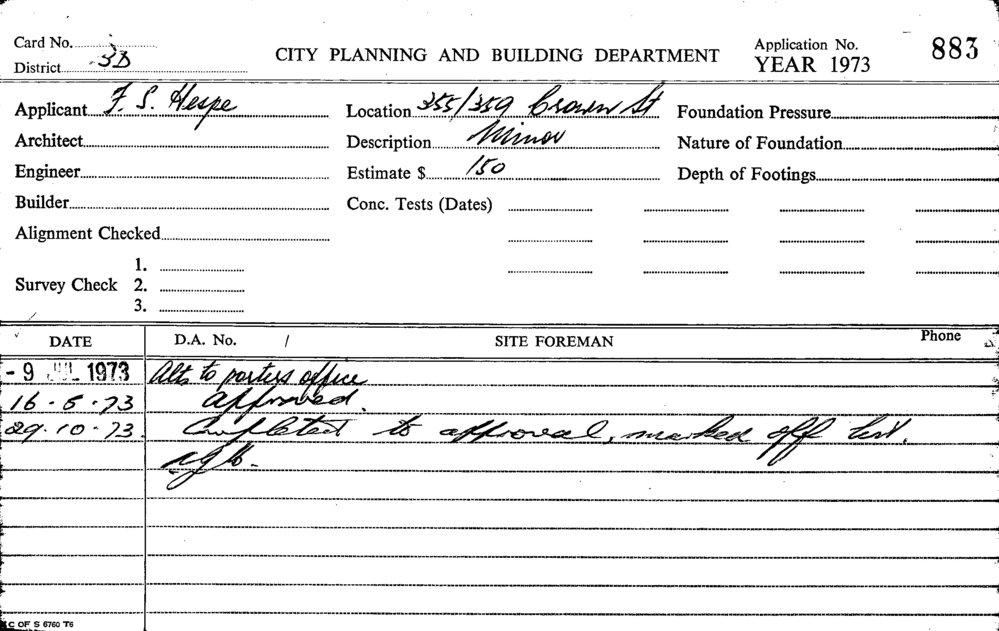 Card No.
District 3D
CITY PLANNING AND BUILDING DEPARTMENT
Application No. 883
YEAR 1973
Applicant F. S. Hespe
Location 355/359 Crown St
Foundation Pressure
Architect
Description Minor
Nature of Foundation
Engineer
Estimate $ 150
Depth of Footings
Builder
Conc. Tests (Dates)
Alignment Checked
Survey Check 1.
2.
3.
DATE D.A. No. / SITE FOREMAN Phone
- 9 JUL 1973 Alts to porters office
16 - 5 - 73 approved.
29. 10 - 73. Completed to approval, marked off list.
C OF S 6760 T6